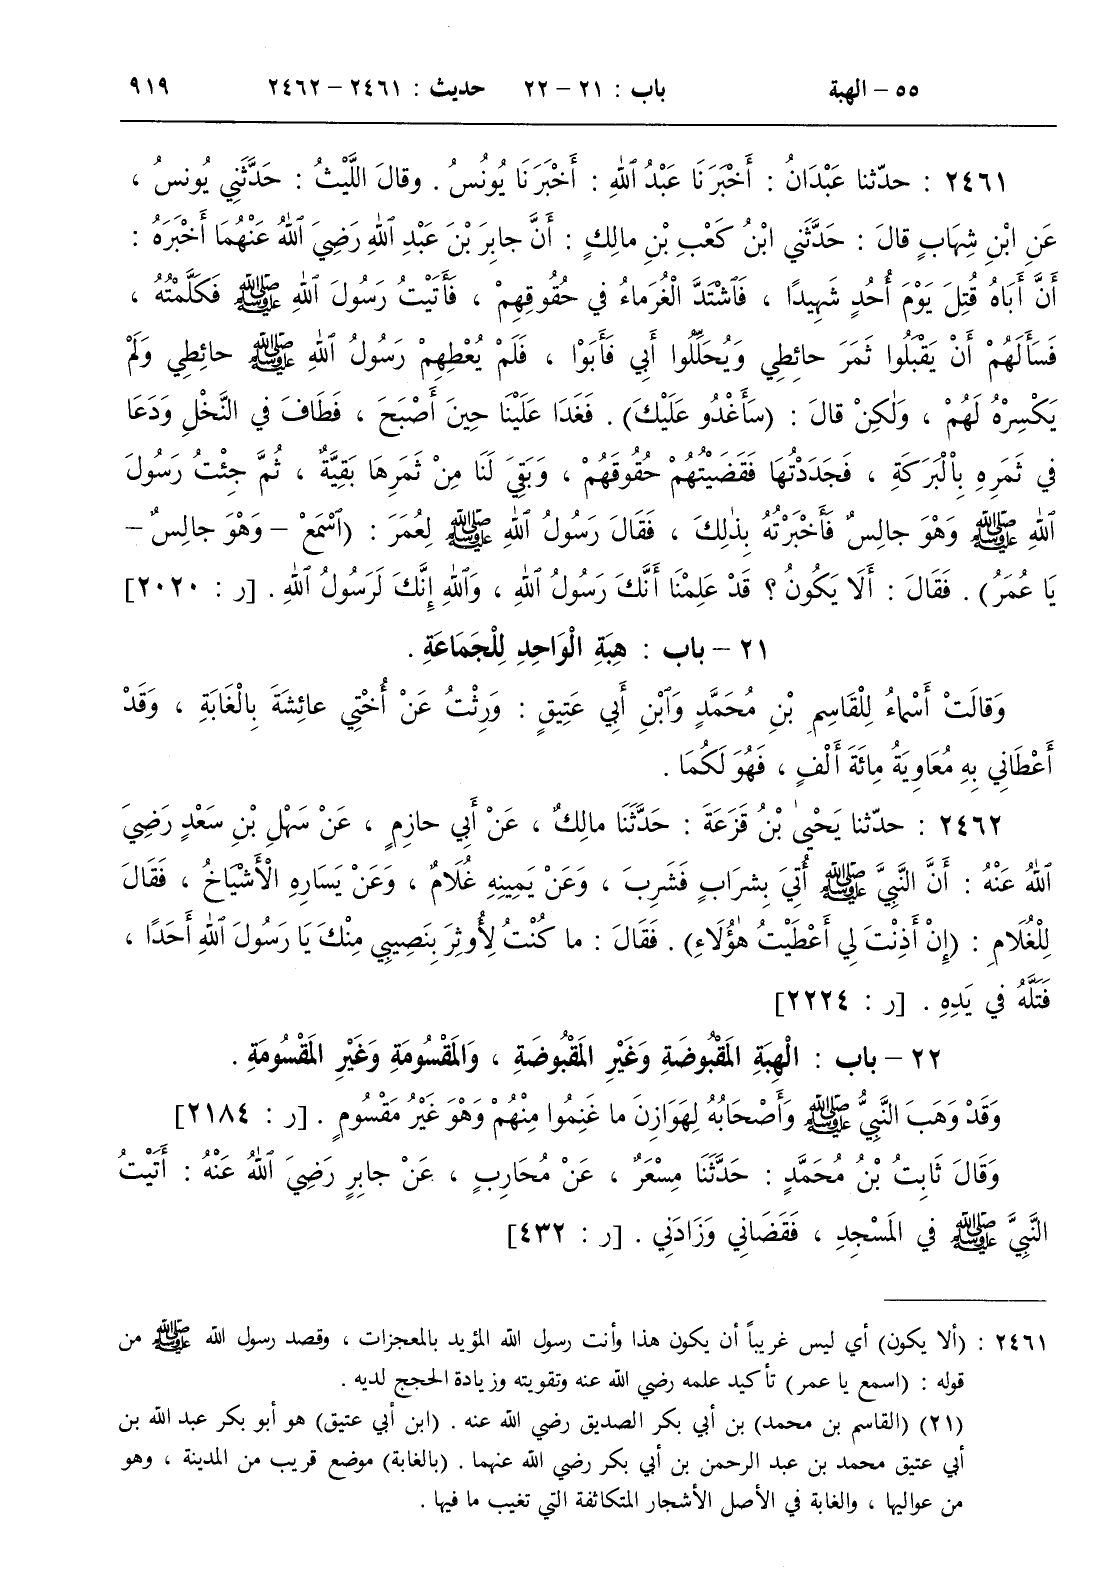 ٥٥ – الهبة باب : ٢١ – ٢٢ حديث : ٢٤٦١ – ٢٤٦٢ ٩١٩
٢٤٦١ : حدّثنا عَبْدَانُ : أَخْبَرَنَا عَبْدُ ٱللهِ : أَخْبَرَنَا يُونُسُ . وقالَ اللَّيْثُ : حَدَّثَنِي يُونسُ ،
عَنِ ابْنِ شِهَابٍ قالَ : حَدَّثَنِي ابْنُ كَعْبِ بْنِ مالِكٍ : أَنَّ جابِرَ بْنَ عَبْدِ ٱللهِ رَضِيَ ٱللهُ عَنْهُمَا أَخْبَرَهُ :
أَنَّ أَبَاهُ قُتِلَ يَوْمَ أُحُدٍ شَهِيدًا ، فَٱشْتَدَّ الْغُرَماءُ في حُقُوقِهِمْ ، فَأَتَيْتُ رَسُولَ ٱللهِ ﷺ فَكَلَّمْتُهُ ،
فَسَأَلَهُمْ أَنْ يَقْبَلُوا ثَمَرَ حائِطِي وَيُحَلِّلُوا أَبِي فَأَبَوْا ، فَلَمْ يُعْطِهِمْ رَسُولُ ٱللهِ ﷺ حائِطِي وَلَمْ
يَكْسِرْهُ لَهُمْ ، وَلٰكِنْ قالَ : (سَأَغْدُو عَلَيْكَ) . فَغَدَا عَلَيْنَا حِينَ أَصْبَحَ ، فَطَافَ في النَّخْلِ وَدَعَا
في ثَمَرِهِ بِٱلْبَرَكَةِ ، فَجَدَدْتُهَا فَقَضَيْتُهُمْ حُقُوقَهُمْ ، وَبَقِيَ لَنَا مِنْ ثَمَرِهَا بَقِيَّةٌ ، ثُمَّ جِئْتُ رَسُولَ
ٱللهِ ﷺ وَهْوَ جالِسٌ فَأَخْبَرْتُهُ بِذٰلِكَ ، فَقَالَ رَسُولُ ٱللهِ ﷺ لِعُمَرَ : (ٱسْمَعْ – وَهْوَ جالِسٌ –
يَا عُمَرُ) . فَقَالَ : أَلَا يَكُونُ ؟ قَدْ عَلِمْنَا أَنَّكَ رَسُولُ ٱللهِ ، وَٱللهِ إِنَّكَ لَرَسُولُ ٱللهِ . [ر : ٢٠٢٠]
٢١ – باب : هِبَةِ الْوَاحِدِ لِلْجَمَاعَةِ .
وَقَالَتْ أَسْماءُ لِلْقَاسِمِ بْنِ مُحَمَّدٍ وَٱبْنِ أَبِي عَتِيقٍ : وَرِثْتُ عَنْ أُخْتِي عائِشَةَ بِالْغَابَةِ ، وَقَدْ
أَعْطَانِي بِهِ مُعَاوِيَةُ مِائَةَ أَلْفٍ ، فَهُوَ لَكُمَا .
٢٤٦٢ : حدّثنا يَحْيىٰ بْنُ قَزَعَةَ : حَدَّثَنَا مالِكٌ ، عَنْ أَبِي حازِمٍ ، عَنْ سَهْلِ بْنِ سَعْدٍ رَضِيَ
ٱللهُ عَنْهُ : أَنَّ النَّبِيَّ ﷺ أُتِيَ بِشَرَابٍ فَشَرِبَ ، وَعَنْ يَمِينِهِ غُلَامٌ ، وَعَنْ يَسَارِهِ الْأَشْيَاخُ ، فَقَالَ
لِلْغُلَامِ : (إِنْ أَذِنْتَ لِي أَعْطَيْتُ هٰؤُلَاءِ) . فَقَالَ : ما كُنْتُ لِأُوثِرَ بِنَصِيبِي مِنْكَ يَا رَسُولَ ٱللهِ أَحَدًا ،
فَتَلَّهُ في يَدِهِ . [ر : ٢٢٢٤]
٢٢ – باب : الْهِبَةِ المَقْبُوضَةِ وَغَيْرِ المَقْبُوضَةِ ، وَالمَقْسُومَةِ وَغَيْرِ المَقْسُومَةِ .
وَقَدْ وَهَبَ النَّبِيُّ ﷺ وَأَصْحَابُهُ لِهَوَازِنَ ما غَنِمُوا مِنْهُمْ وَهْوَ غَيْرُ مَقْسُومٍ . [ر : ٢١٨٤]
وَقَالَ ثَابِتُ بْنُ مُحَمَّدٍ : حَدَّثَنَا مِسْعَرٌ ، عَنْ مُحَارِبٍ ، عَنْ جابِرٍ رَضِيَ ٱللهُ عَنْهُ : أَتَيْتُ
النَّبِيَّ ﷺ في المَسْجِدِ ، فَقَضَانِي وَزَادَنِي . [ر : ٤٣٢]
٢٤٦١ : (ألا يكون) أي ليس غريباً أن يكون هذا وأنت رسول الله المؤيد بالمعجزات ، وقصد رسول الله ﷺ من
قوله : (اسمع يا عمر) تأكيد علمه رضي الله عنه وتقويته وزيادة الحجج لديه .
(٢١) (القاسم بن محمد) بن أبي بكر الصديق رضي الله عنه . (ابن أبي عتيق) هو أبو بكر عبد الله بن
أبي عتيق محمد بن عبد الرحمن بن أبي بكر رضي الله عنهما . (بالغابة) موضع قريب من المدينة ، وهو
من عواليها ، والغابة في الأصل الأشجار المتكاثفة التي تغيب ما فيها .